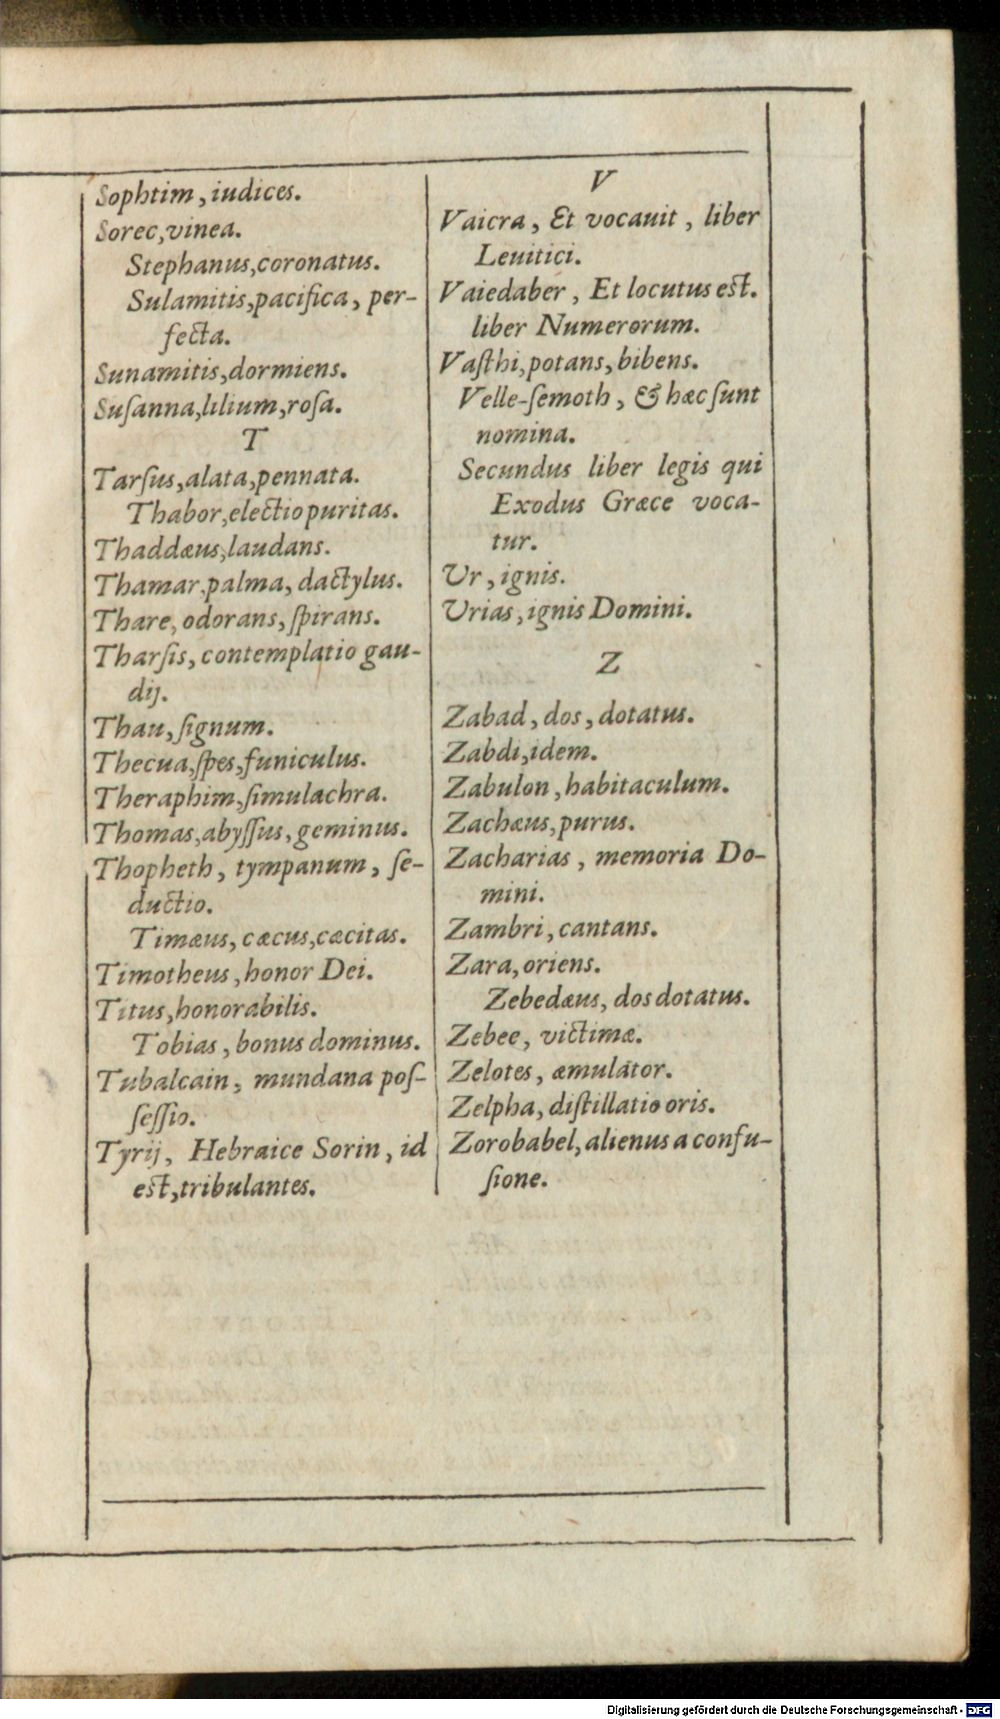 Sophtim, iudices.
Sorec, vinea.
Stephanus, coronatus.
Sulamitis, pacifica, per-
fecta.
Sunamitis, dormiens.
Suſanna, lilium, roſa.
T
Tarſus, alata, pennata.
Thabor, electio puritas.
Thaddæus, laudans.
Thamar, palma, dactylus.
Thare, odorans, ſpirans.
Tharſis, contemplatio gau-
dij.
Thau, ſignum.
Thecua, ſpes, funiculus.
Theraphim, ſimulachra.
Thomas, abyſſus, geminus.
Thopheth, tympanum, ſe-
ductio.
Timæus, cæcus, cæcitas.
Timotheus, honor Dei.
Titus, honorabilis.
Tobias, bonus dominus.
Tubalcain, mundana poſ-
ſeſſio.
Tyrij, Hebraice Sorin, id
est, tribulantes.
V
Vaicra, Et vocauit, liber
Leuitici.
Vaiedaber, Et locutus est.
liber Numerorum.
Vaſthi, potans, bibens.
Velle-ſemoth, & hæc ſunt
nomina.
Secundus liber legis qui
Exodus Græce voca-
tur.
Vr, ignis.
Vrias, ignis Domini.
Z
Zabad, dos, dotatus.
Zabdi, idem.
Zabulon, habitaculum.
Zachæus, purus.
Zacharias, memoria Do-
mini.
Zambri, cantans.
Zara, oriens.
Zebedæus, dos dotatus.
Zebee, victimæ.
Zelotes, æmulator.
Zelpha, diſtillatio oris.
Zorobabel, alienus a confu-
ſione.
Digitalisierung gefördert durch die Deutsche Forschungsgemeinschaft - DFG